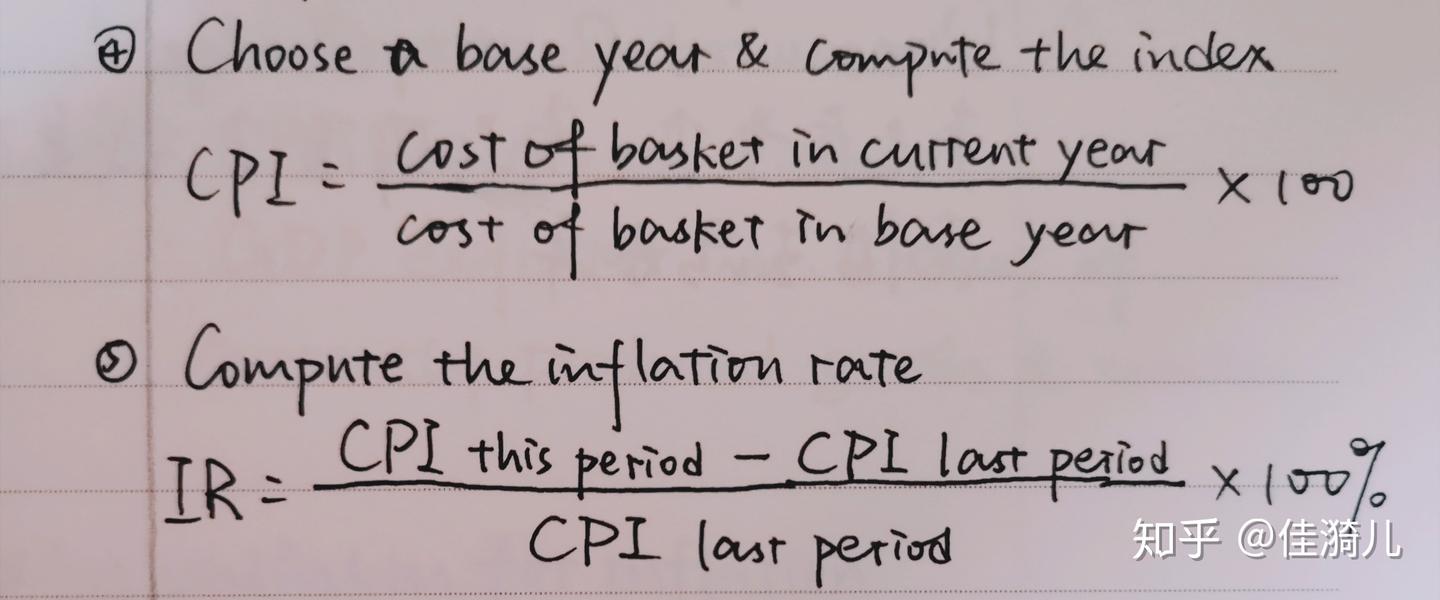 ④ Choose a base year & compute the index
CPI = cost of basket in current year / cost of basket in base year × 100
⑤ Compute the inflation rate
IR = CPI this period - CPI last period / CPI last period × 100%
知乎 @佳漪儿